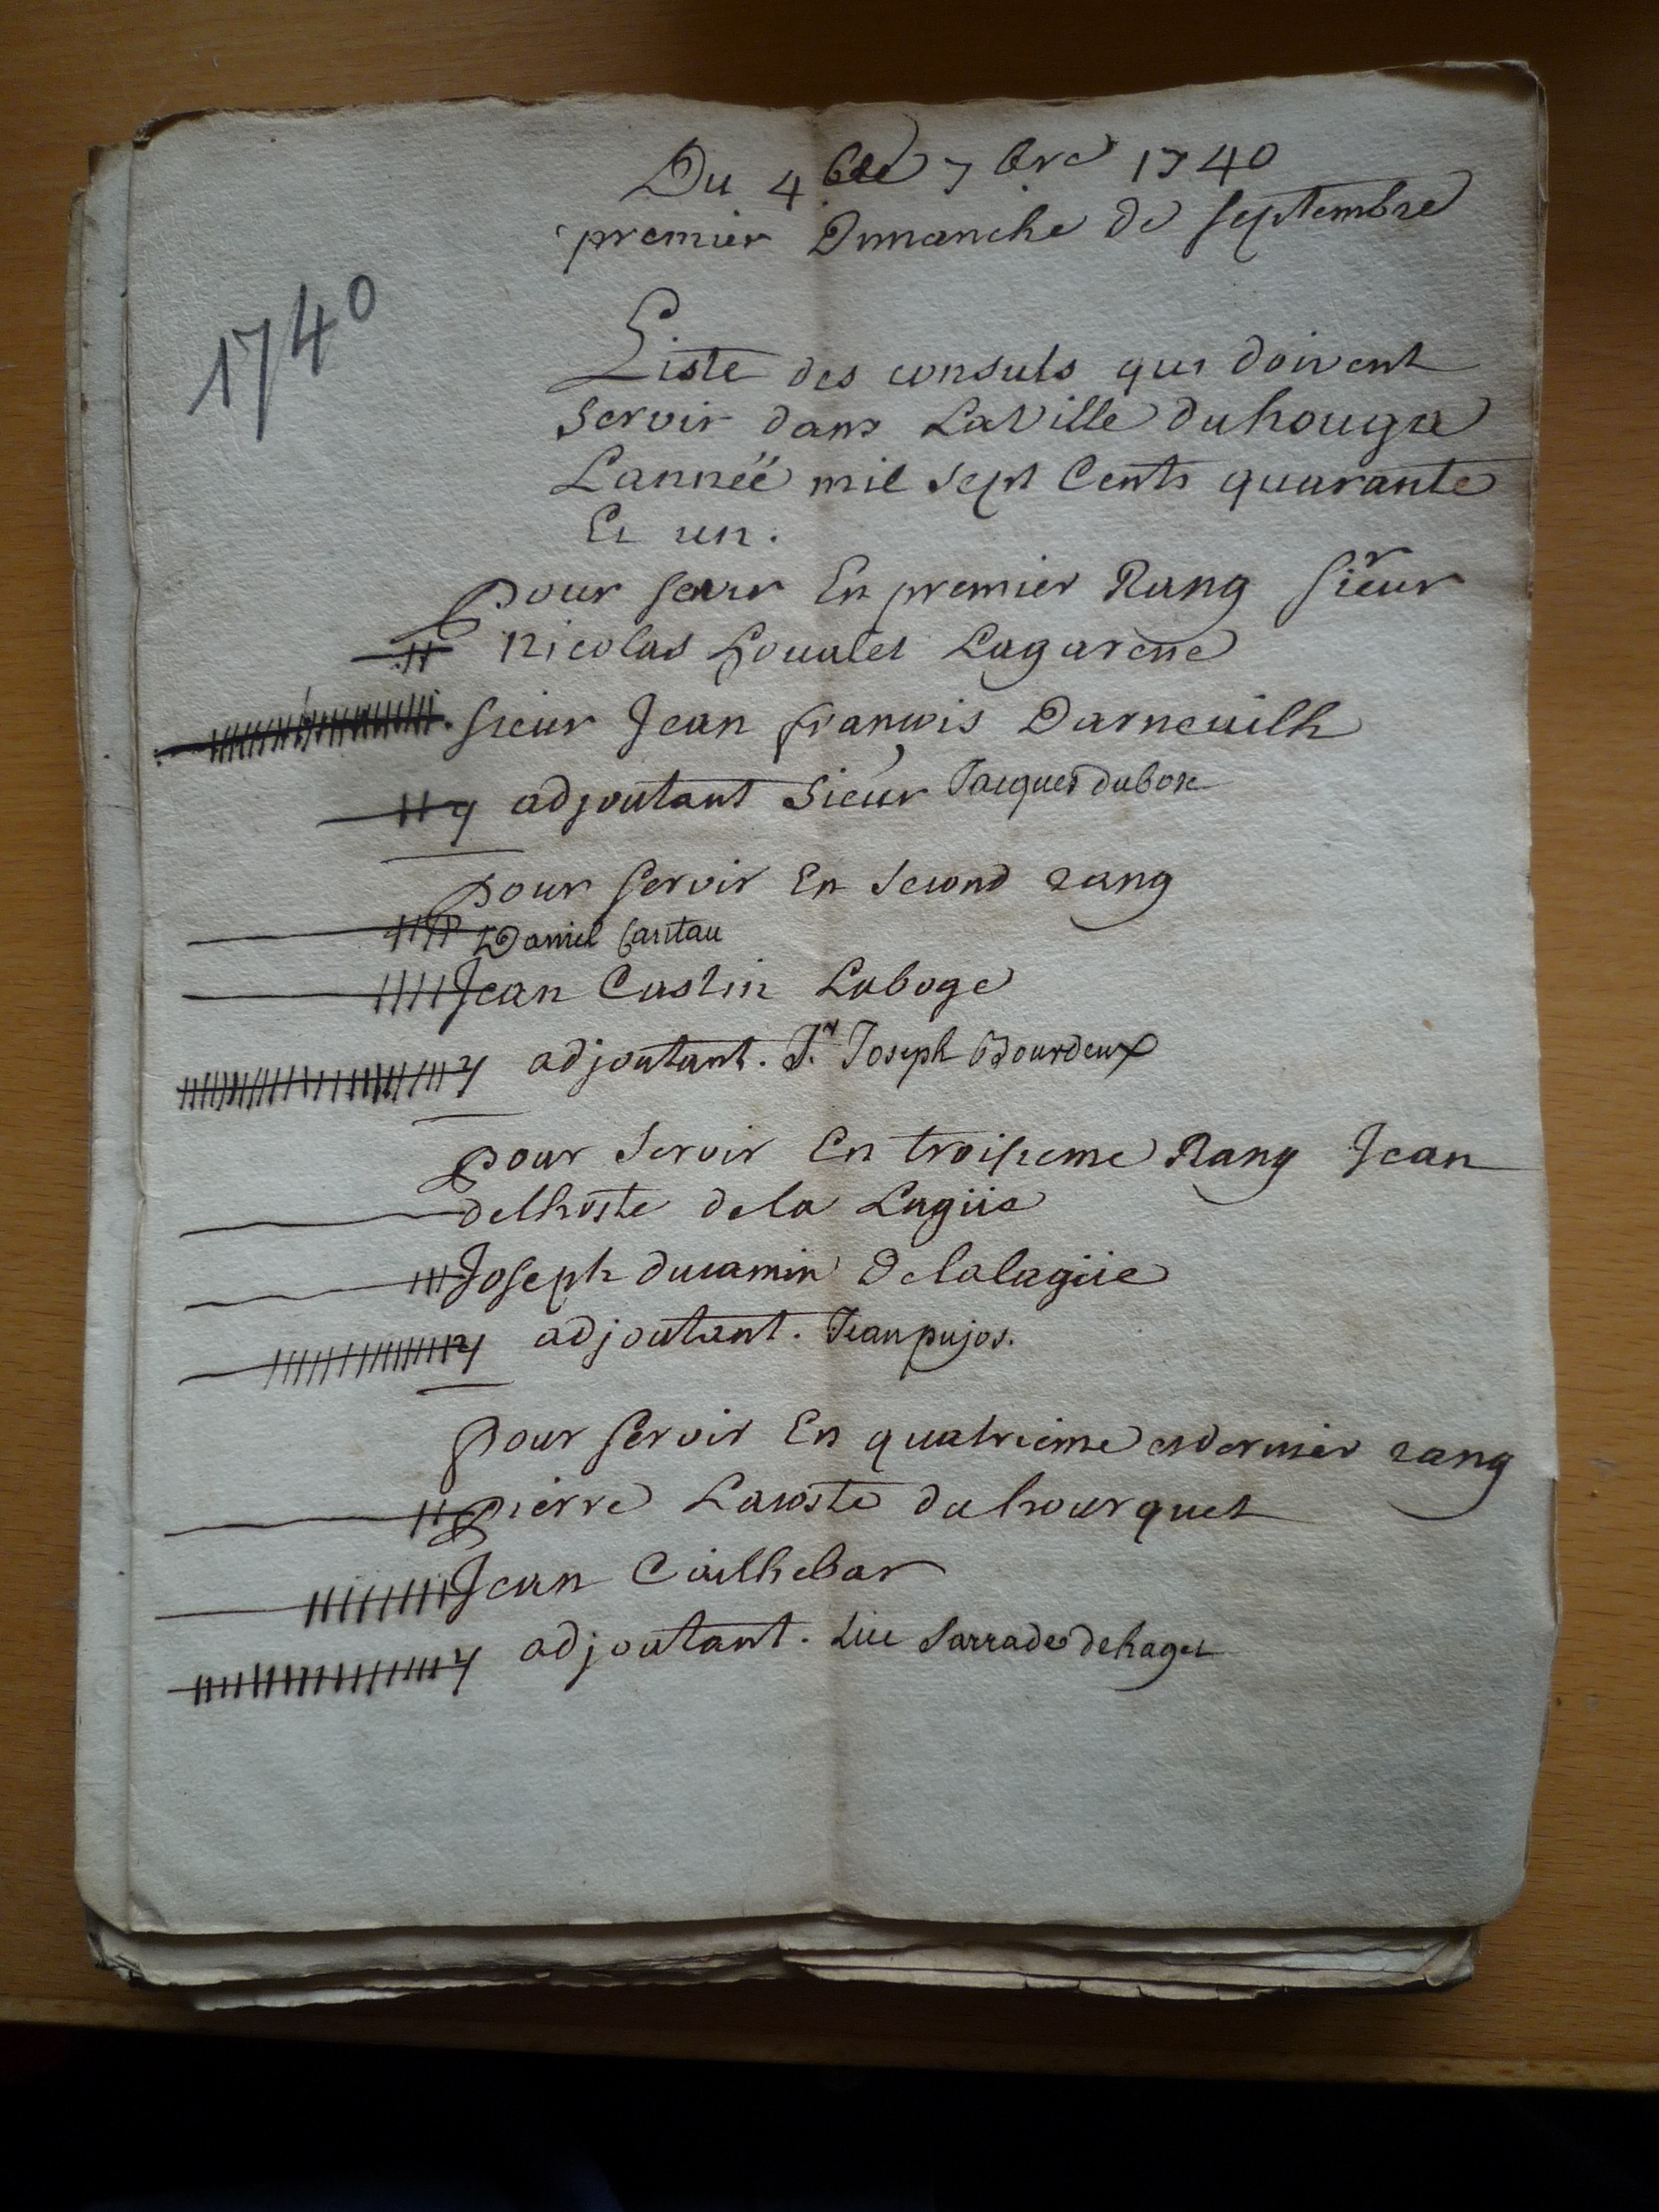 Du 4 7bre 1740
premier Dimanche de septembre
1740
Liste des consuls qui doivent
servir dans LaVille duhouga
L'anneë mil sept Cents quarante
Et un.
pour servir En premier Rang sieur
Nicolas Loualet Lagarene
sieur Jean françois Darneuilh
adjoutant sieur Jacques dubosc
pour servir En second rang
Daniel Caritau
Jean Castin Laboge
adjoutant. Jn Joseph Bourdeux
pour servir En troisieme Rang Jean
delhoste dela Lagüe
Joseph ducamin Delalagüe
adjoutant. Jean pujos.
pour servir En quatrieme et dernier rang
pierre Lacoste du hourquet
Jean Cailhebar
adjoutant. Luc Sarrade dehaget